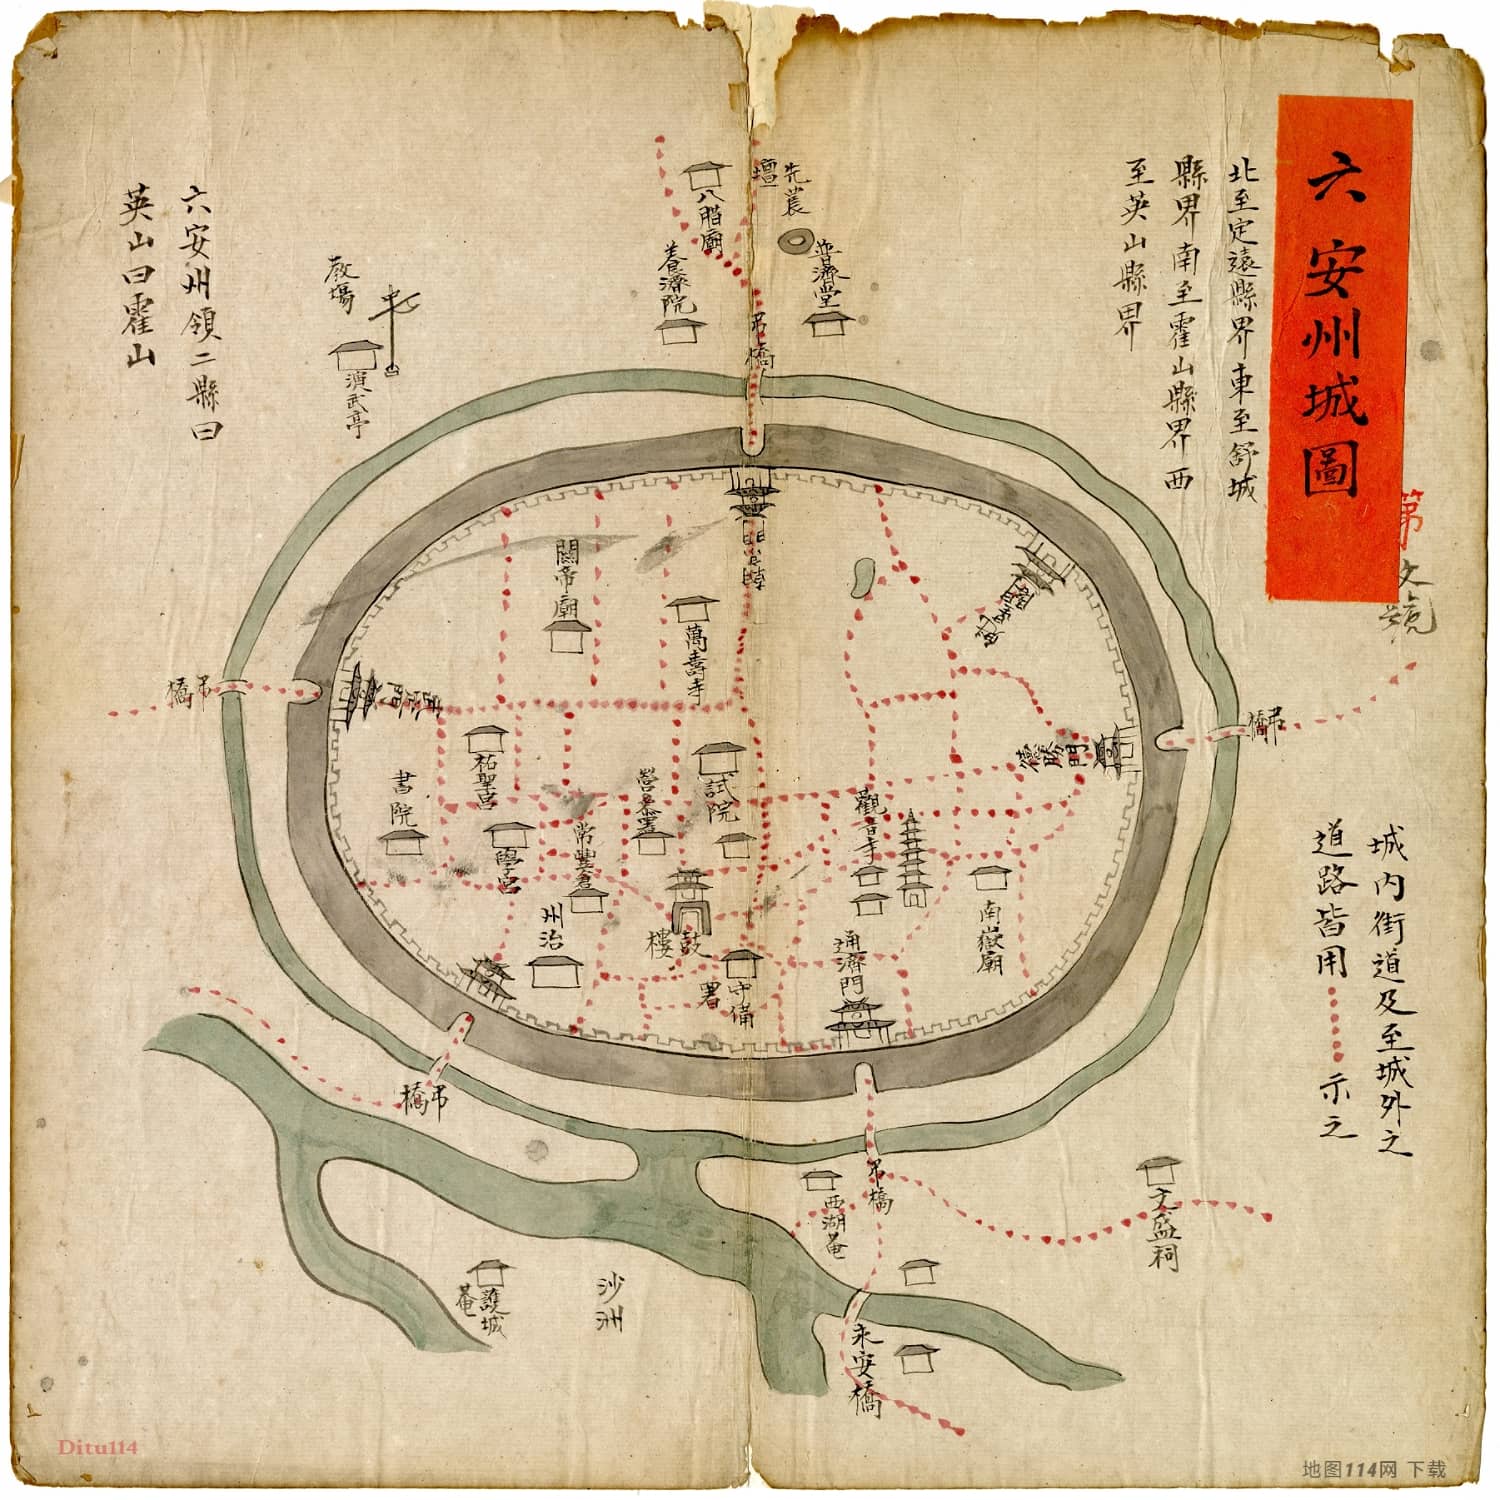 六安州城圖
北至定遠縣界東至舒城
縣界南至霍山縣界西
至英山縣界
第
號
城內街道及至城外之
道路皆用
示之
先農
壇
普濟堂
八腊廟
養濟院
吊橋
教場
演武亭
六安州領二縣曰
英山曰霍山
關帝廟
萬壽寺
吊橋
吊橋
德勝門
祐聖宮
書院
試院
學宮
常豐倉
觀音寺
南嶽廟
州治
鼓樓
守備
署
通濟門
吊橋
吊橋
西湖菴
文盛祠
護城
菴
沙洲
永安橋
Ditu114
地图114网 下载